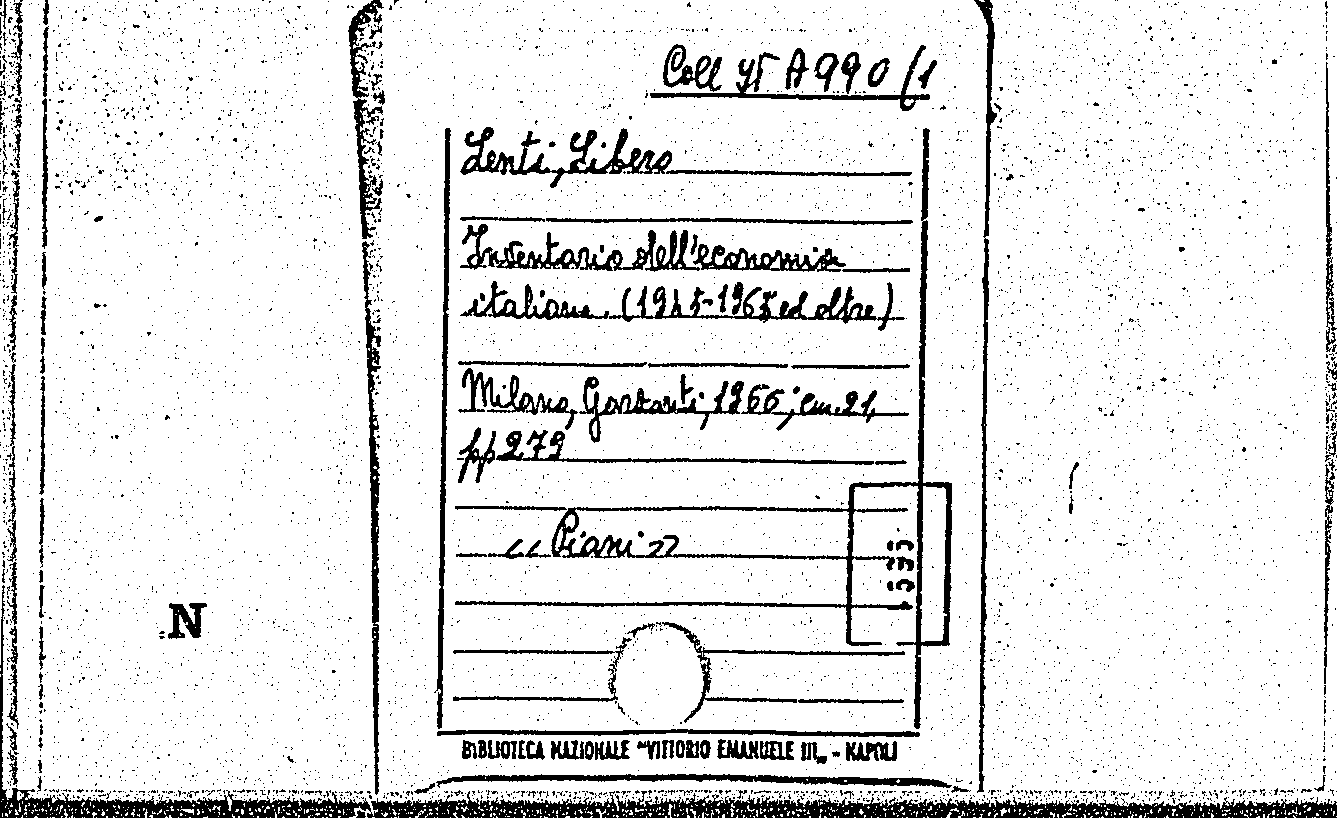 Coll 45 A 990/1
Lenti, Libero
Inventario dell'economia
italiana. (1945-1965 ed oltre)
Milano, Garzanti, 1966; cm. 21,
pp 279
<< Piani >>
N
BIBLIOTECA NAZIONALE "VITTORIO EMANUELE III„ - NAPOLI